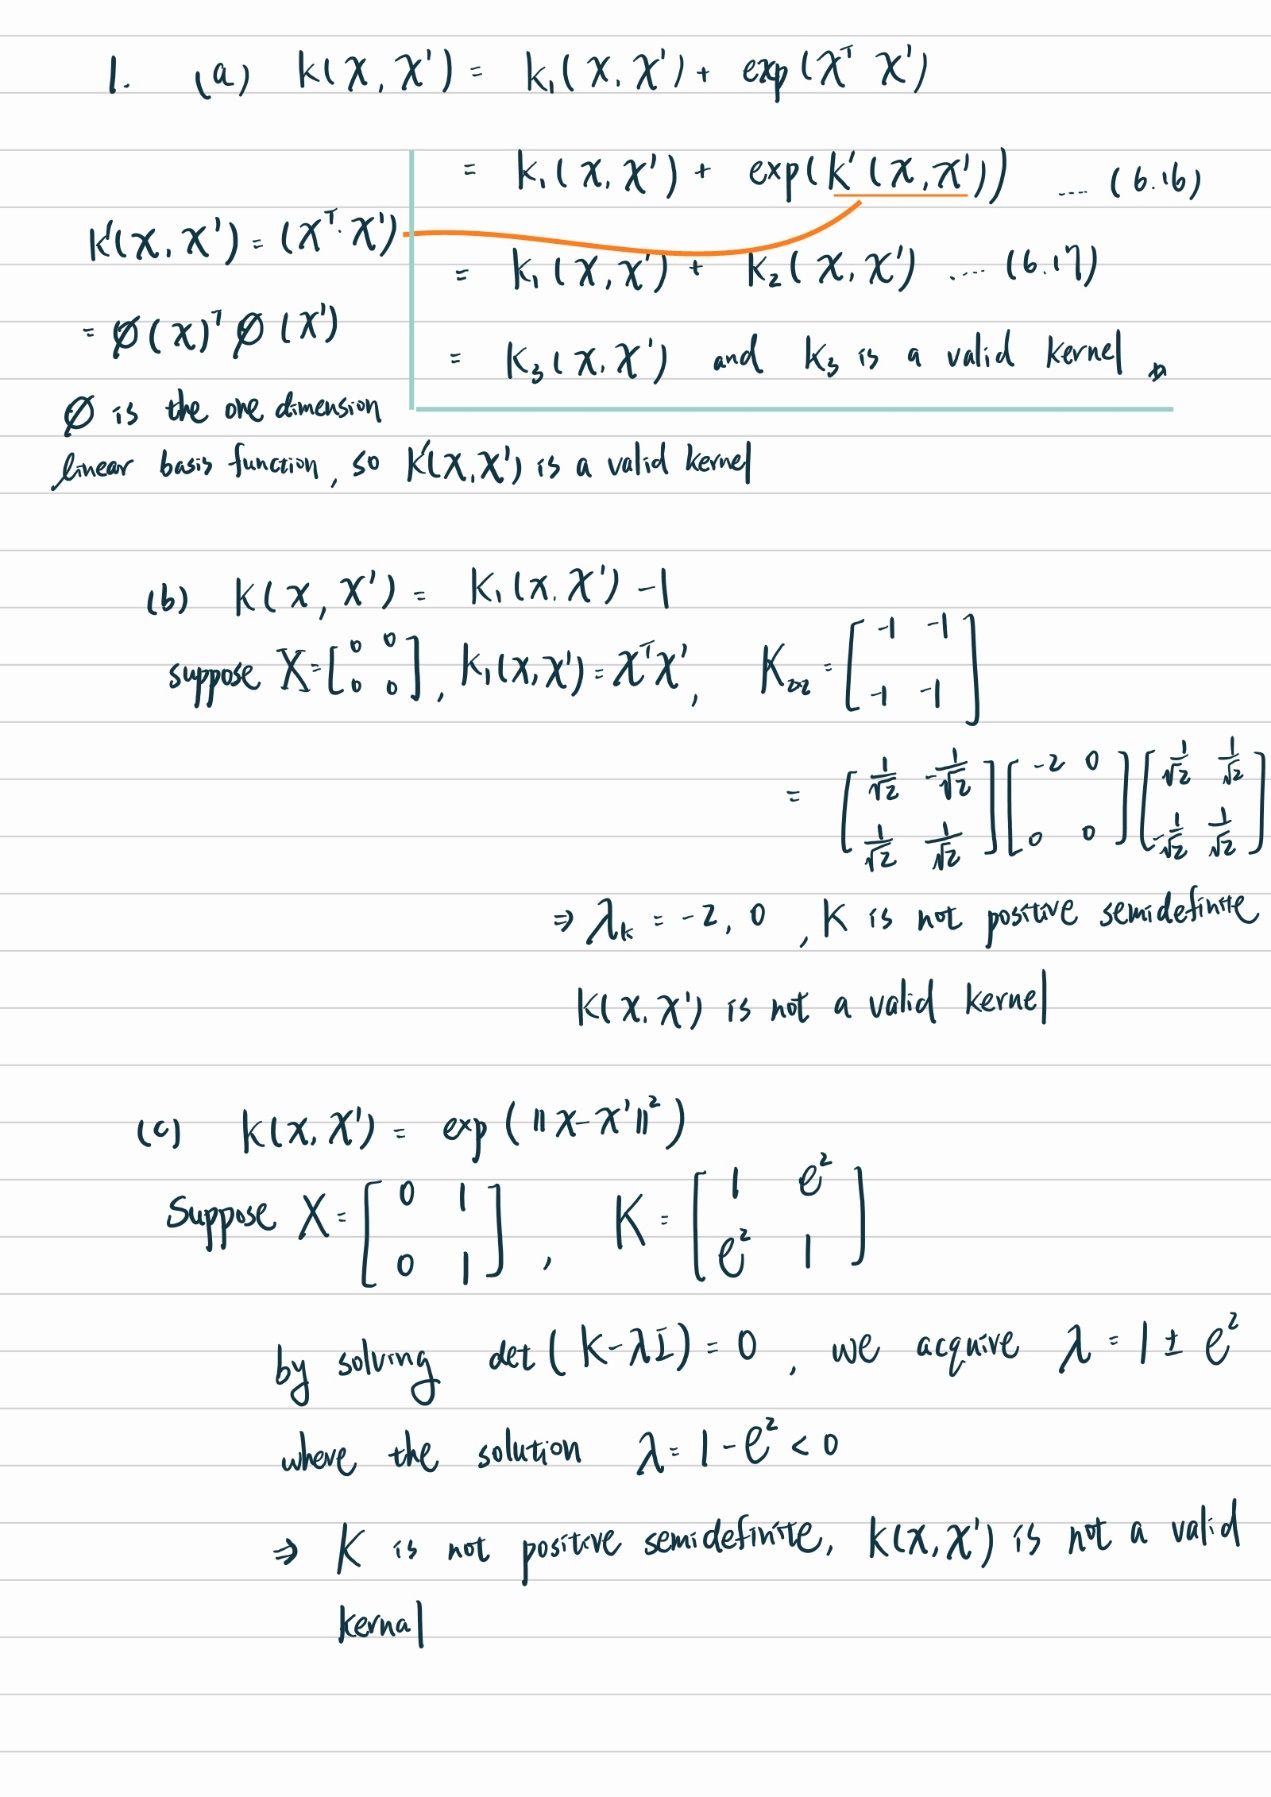 1. (a) k(x, x') = k₁(x, x') + exp(xᵀ x')
= k₁(x, x') + exp(k'(x, x')) .... (6.16)
k'(x, x') = (xᵀ· x')
= k₁(x, x') + k₂(x, x') ..... (6.17)
= ∅(x)ᵀ ∅(x')
= k₃(x, x') and k₃ is a valid kernel
∅ is the one dimension
linear basis function, so k'(x, x') is a valid kernel
(b) k(x, x') = k₁(x, x') -1
suppose X = [0 0; 0 0], k₁(x, x') = xᵀx', K₂ₓ₂ = [-1 -1; -1 -1]
= [1/√2 -1/√2; 1/√2 1/√2] [-2 0; 0 0] [1/√2 1/√2; -1/√2 1/√2]
⇒ λₖ = -2, 0 , K is not positive semidefinite
k(x, x') is not a valid kernel
(c) k(x, x') = exp(‖x-x'‖²)
Suppose X = [0 1; 0 1], K = [1 e²; e² 1]
by solving det(K-λI) = 0 , we acquire λ = 1 ± e²
where the solution λ = 1 - e² < 0
⇒ K is not positive semidefinite, k(x, x') is not a valid
kernal